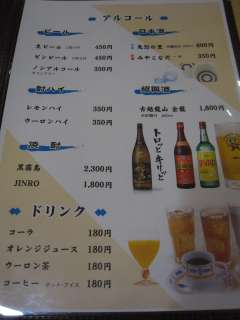 アルコール
ビール
生ビール 450円
ビンビール 450円
ノンアルコール 350円
酎ハイ
レモンハイ 350円
ウーロンハイ 350円
焼酎
黒霧島 2,300円
JINRO 1,800円
日本酒
600円
350円
紹興酒
古越龍山 金龍
1,800円
トロッと、キリッと
JINRO
ドリンク
コーラ 180円
オレンジジュース 180円
ウーロン茶 180円
コーヒー ホット・アイス 180円